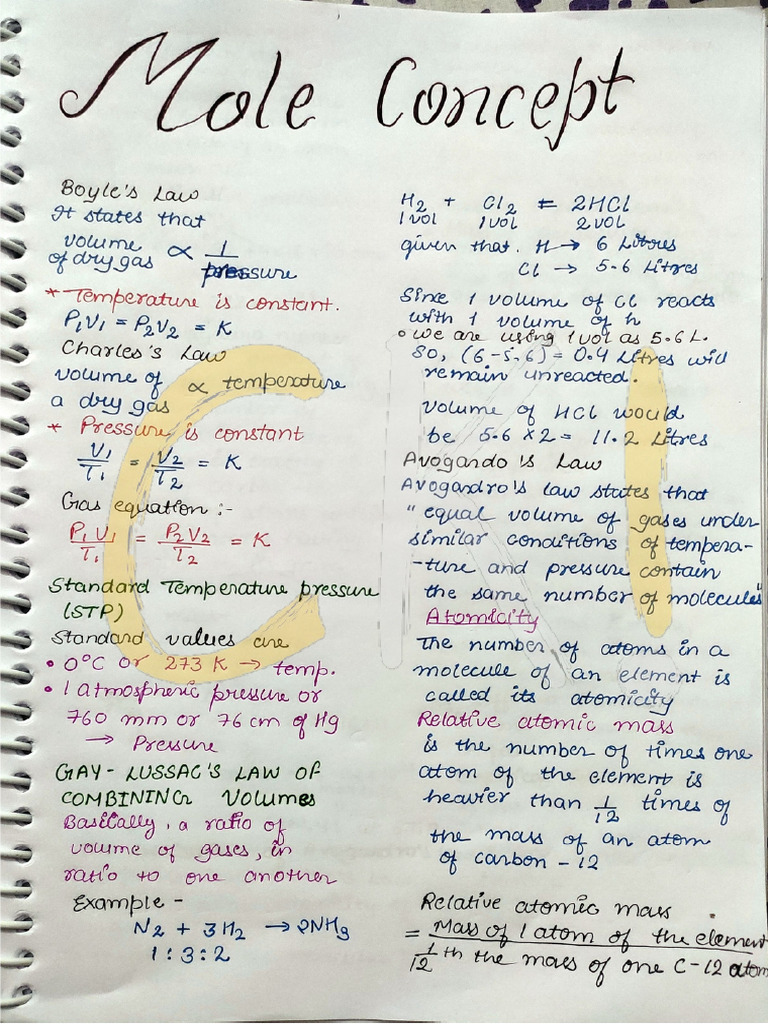 Mole Concept
Boyle's Law
It states that
volume
of dry gas ∝ 1/pressure
* Temperature is constant.
P₁V₁ = P₂V₂ = K
Charles's Law
volume of ∝ temperature
a dry gas
* Pressure is constant
V₁/T₁ = V₂/T₂ = K
Gas equation :-
P₁V₁/T₁ = P₂V₂/T₂ = K
Standard Temperature pressure
(STP)
Standard values are
• 0°C or 273 K → temp.
• 1 atmospheric pressure or
760 mm or 76 cm of Hg
→ Pressure
GAY-LUSSAC'S LAW OF
COMBINING VOLUMES
Basically, a ratio of
volume of gases, in
ratio to one another
Example -
N₂ + 3H₂ → 2NH₃
1 : 3 : 2
H₂ + Cl₂ = 2HCl
1 vol 1 vol 2 vol
given that. H → 6 Litres
Cl → 5.6 Litres
Since 1 volume of Cl reacts
with 1 volume of h
• we are using 1 vol as 5.6 L.
So, (6-5.6) = 0.4 Litres will
remain unreacted.
volume of HCl would
be 5.6 × 2 = 11.2 Litres
Avogando's Law
Avogandro's law states that
"equal volume of gases under
similar conditions of tempera-
-ture and pressure contain
the same number of molecules"
Atomicity
The number of atoms in a
molecule of an element is
called its atomicity
Relative atomic mass
is the number of times one
atom of the element is
heavier than 1/12 times of
the mass of an atom
of carbon - 12
Relative atomic mass
= Mass of 1 atom of the element
1/12 th the mass of one C-12 atom